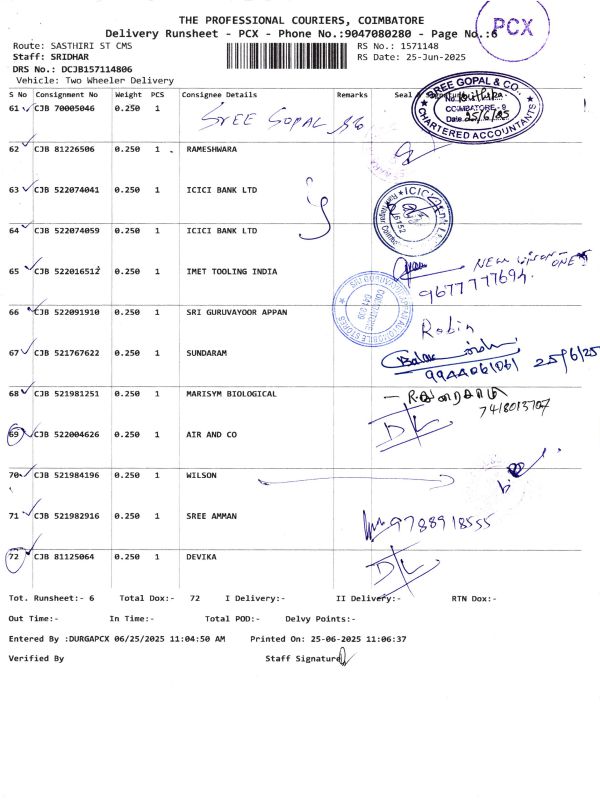 THE PROFESSIONAL COURIERS, COIMBATORE
Delivery Runsheet - PCX - Phone No.:9047080280 - Page No.:6
PCX
Route: SASTHIRI ST CMS
RS No.: 1571148
Staff: SRIDHAR
RS Date: 25-Jun-2025
DRS No.: DCJB157114806
Vehicle: Two Wheeler Delivery
S No Consignment No Weight PCS Consignee Details Remarks Seal
SREE GOPAL & CO.
COIMBATORE - 9
Date 25/6/25
CHARTERED ACCOUNTANTS
61 CJB 70005046 0.250 1 SREE GOPAL
62 CJB 81226506 0.250 1 RAMESHWARA
63 CJB 522074041 0.250 1 ICICI BANK LTD
64 CJB 522074059 0.250 1 ICICI BANK LTD
65 CJB 522016512 0.250 1 IMET TOOLING INDIA
9677777694.
66 CJB 522091910 0.250 1 SRI GURUVAYOOR APPAN
Robin
67 CJB 521767622 0.250 1 SUNDARAM
9944061061 25/6/25
68 CJB 521981251 0.250 1 MARISYM BIOLOGICAL
7418013707
69 CJB 522004626 0.250 1 AIR AND CO D/L
70 CJB 521984196 0.250 1 WILSON
71 CJB 521982916 0.250 1 SREE AMMAN 9788918555
72 CJB 81125064 0.250 1 DEVIKA D/L
Tot. Runsheet:- 6 Total Dox:- 72 I Delivery:- II Delivery:- RTN Dox:-
Out Time:- In Time:- Total POD:- Delvy Points:-
Entered By :DURGAPCX 06/25/2025 11:04:50 AM Printed On: 25-06-2025 11:06:37
Verified By Staff Signature